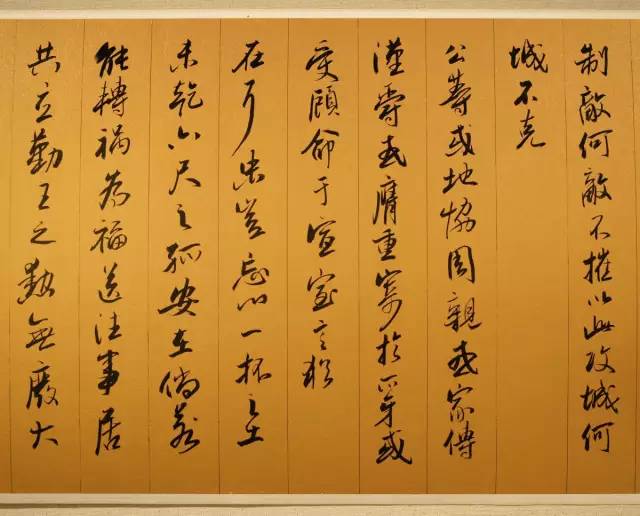 制敵何敵不摧以此攻城何
城不克
公等或地協周親或家傳
漢爵或膺重寄於爪牙或
受顧命于宣室言猶
在耳忠豈忘心一抔之土
未乾六尺之孤安在倘若
能轉祸為福送往事居
共立勤王之勳無廢大